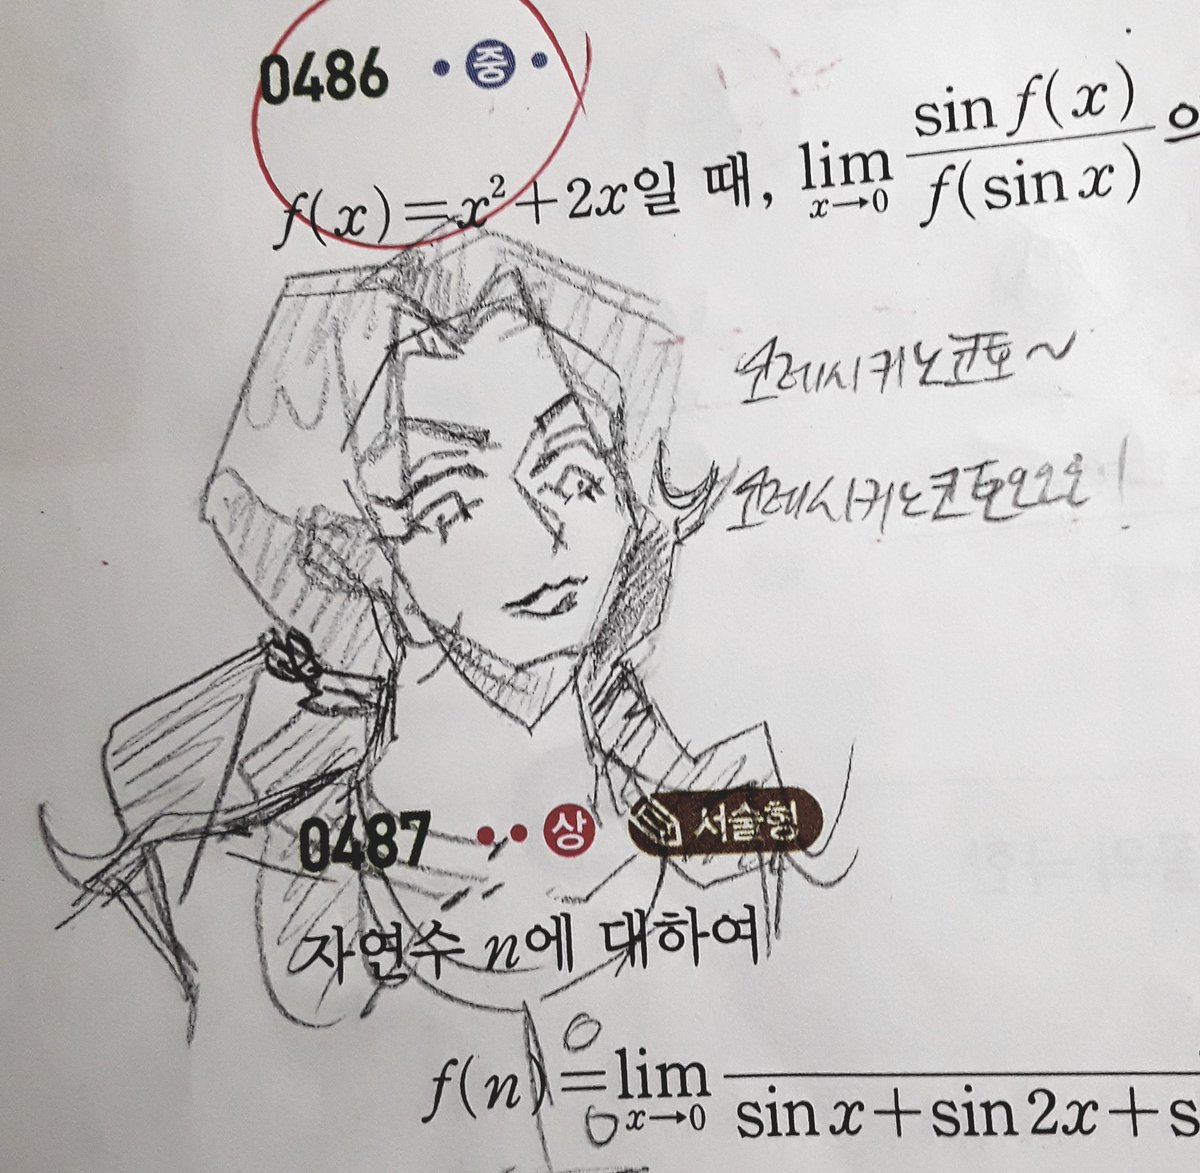 0486 중
f(x)=x²+2x일 때, lim x→0 sin f(x) / f(sin x) 의
소레시키노코포~
소레시키노코토오오오!
0487 상 서술형
자연수 n에 대하여
f(n)=lim x→0 sin x+sin 2x+s